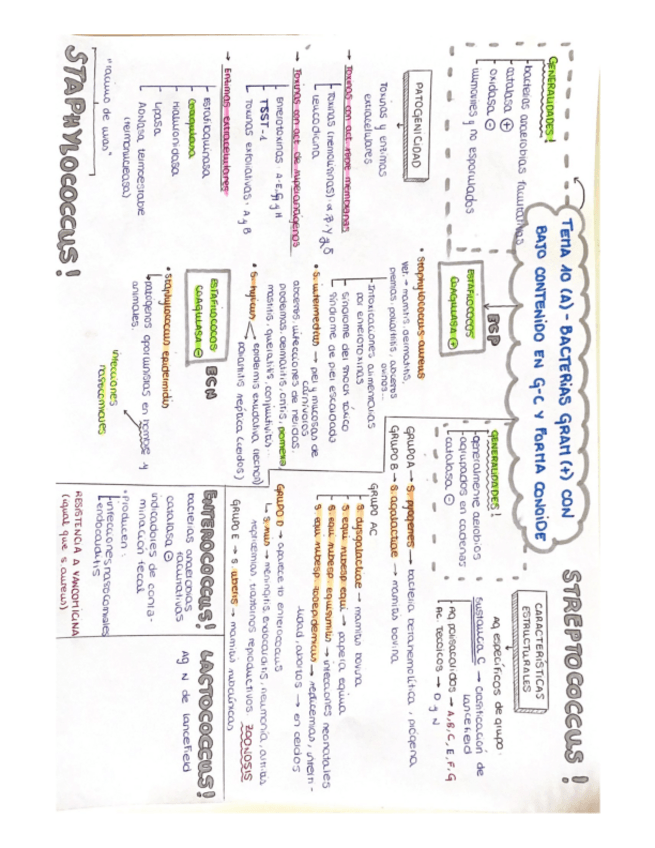 TEMA 10 (A) - BACTERIAS GRAM (+) CON
BAJO CONTENIDO EN G-C Y FORMA COCOIDE
STAPHYLOCOCCUS!
"racimo de uvas"
GENERALIDADES!
bacterias anaerobias facultativas
catalasa +
oxidasa -
inmóviles y no esporulados
PATOGENICIDAD
Toxinas y enzimas
extracelulares
→ Toxinas con act. sobre membranas
Toxinas (hemolisinas): α, β, γ y δ
Leucocidina
→ Toxinas con act. de superantígenos
Enterotoxinas A-E, G y H
TSST-1
Toxinas exfoliativas: A y B
→ Enzimas extracelulares
Estafiloquinasa
Coagulasa
Hialuronidasa
Lipasa
ADNasa termoestable
(termonucleasa)
ESTAFILOCOCOS
COAGULASA +
ECP
• Staphylococcus aureus
vet → mamitis, dermatitis,
piemias, poliartritis, abscesos
ovinos...
Intoxicaciones alimentarias
por enterotoxinas
síndrome del shock tóxico
síndrome de piel escaldada
• S. intermedius → piel y mucosas de
carnívoros
abscesos, infecciones de heridas,
piodermas, dermatitis, otitis, piometra
mastitis, queratitis, conjuntivitis...
• S. hyicus
epidermis exudativa (lechón)
poliartritis séptica (cerdos)
ESTAFILOCOCOS
COAGULASA -
ECN
• Staphylococcus epidermidis
patógenos oportunistas en hombre y
animales.
infecciones
nosocomiales
STREPTOCOCCUS!
GENERALIDADES!
generalmente aerobios
agrupados en cadenas
catalasa -
CARACTERÍSTICAS
ESTRUCTURALES
Ag específicos de grupo:
Sustancia C → clasificación de
Lancefield
Ag polisacáridos → A, B, C, E, F, G
Ac. teicoicos → D y N
GRUPO A → S. pyogenes → bacteria betahemolítica, piógena
GRUPO B → S. agalactiae → mamitis bovina
GRUPO AC
S. dysgalactiae → mamitis bovina
S. equi subesp equi → papera equina
S. equi subesp equisimilis → infecciones neonatales
S. equi subesp zooepidemicus → septicemias, inferti-
lidad, abortos → en cerdos
GRUPO D → aparece 10 enterococcus
↳ S. suis → meningitis, endocarditis, neumonía, artritis
septicemias, trastornos reproductivos. ZOONOSIS
GRUPO E → S. uberis → mamitis subclínicas
ENTEROCOCCUS!
bacterias anaerobias
facultativas
catalasa -
indicadores de conta-
minación fecal
• Producen:
infecciones nosocomiales
endocarditis
RESISTENCIA A VANCOMICINA
(igual que S. aureus)
LACTOCOCCUS!
Ag N de Lancefield